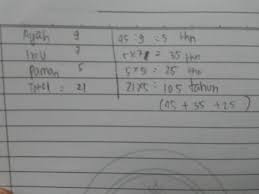 Ayah 9 45 : 9 = 5 thn
Ibu 7 5 x 7 = 35 thn
Paman 5 5 x 5 = 25 thn
Total = 21 21 x 5 = 105 tahun
(45 + 35 + 25)